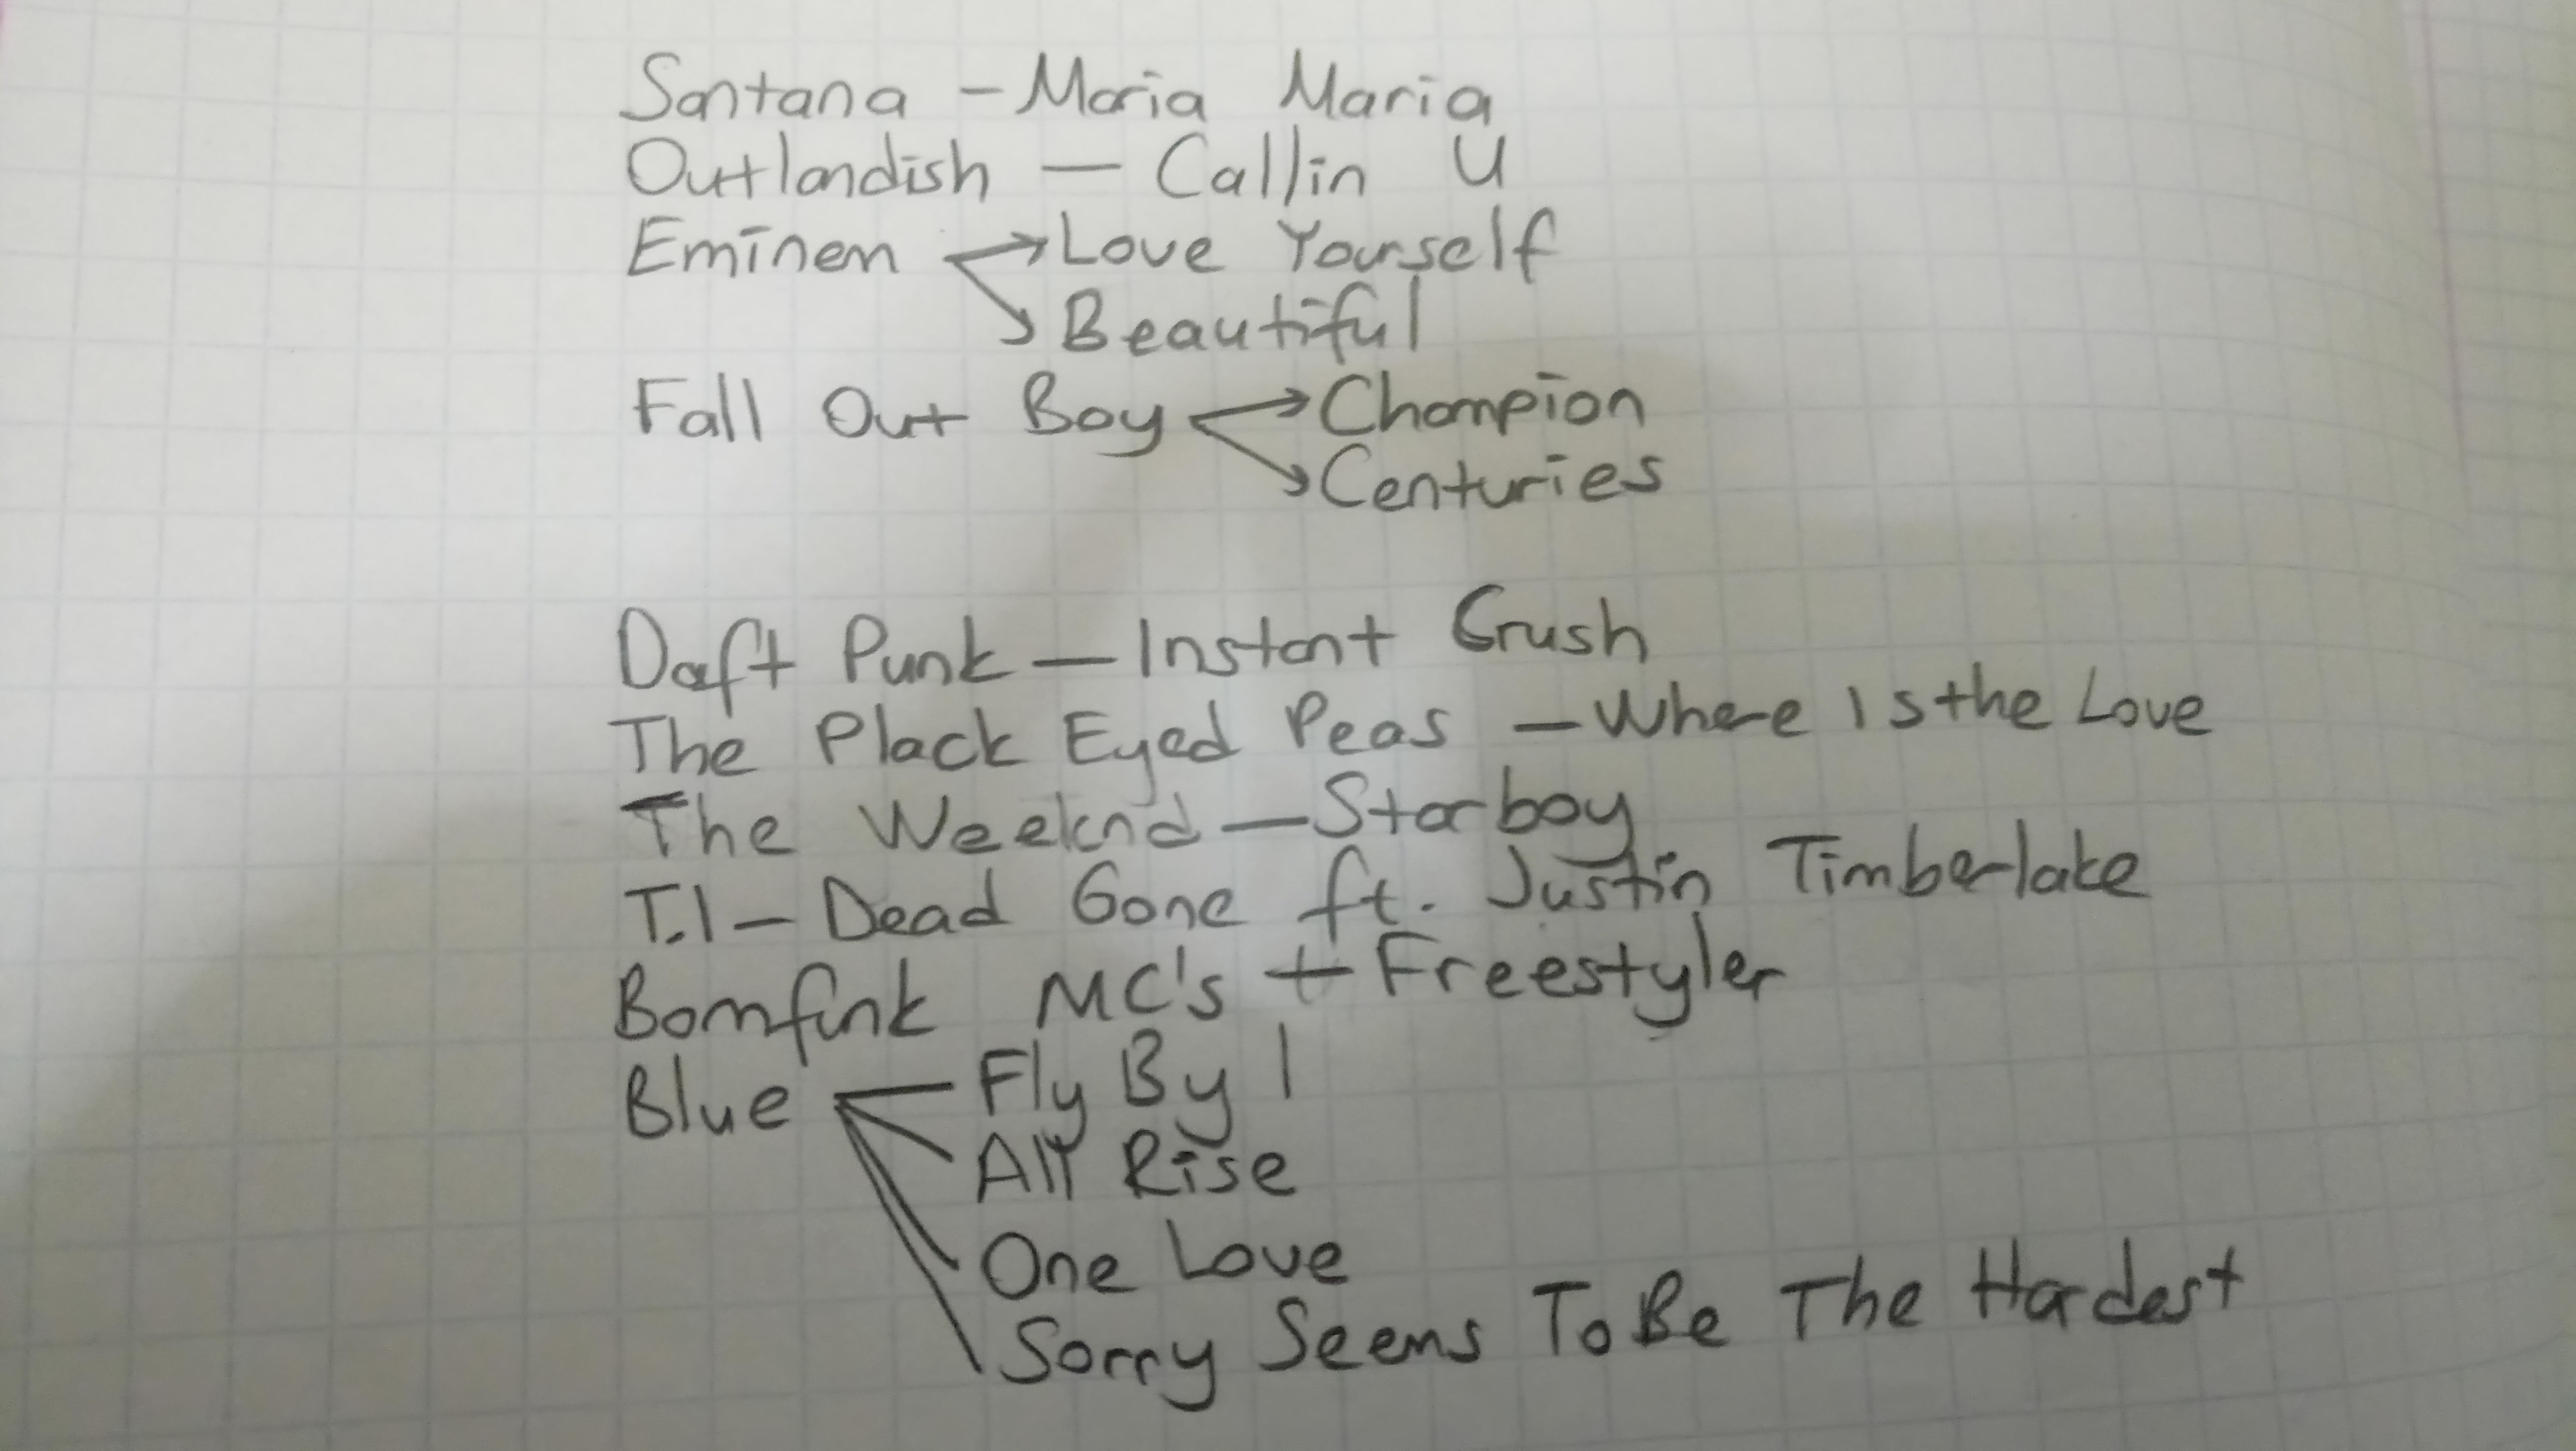 Santana - Maria Maria
Outlandish - Callin U
Eminem → Love Yourself
→ Beautiful
Fall Out Boy → Champion
→ Centuries
Daft Punk - Instant Crush
The Plack Eyed Peas - Where Is the Love
The Weeknd - Starboy
T.I - Dead Gone ft. Justin Timberlake
Bomfunk MC's - Freestyler
Blue - Fly By I
All Rise
One Love
Sorry Seems To Be The Hardest